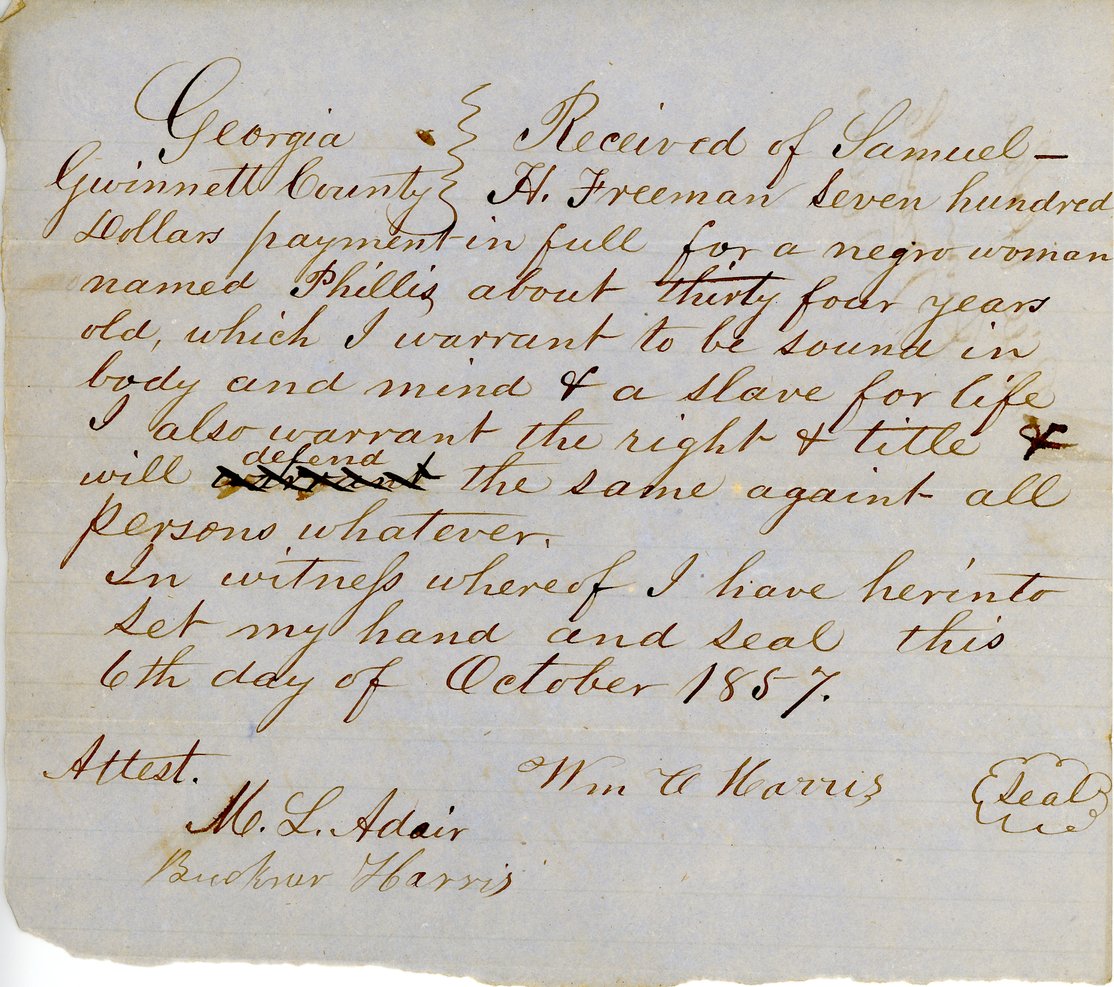 Georgia } Received of Samuel –
Gwinnett County } H. Freeman seven hundred
Dollars payment in full for a negro woman
named Phillis about thirty four years
old, which I warrant to be sound in
body and mind & a slave for life
I also warrant the right & title &
will warrant defend the same againt all
persons whatever.
In witness whereof I have herinto
set my hand and seal this
6th day of October 1857.
Attest. Wm C Harris Seal
M. L. Adair
Buckner Harris